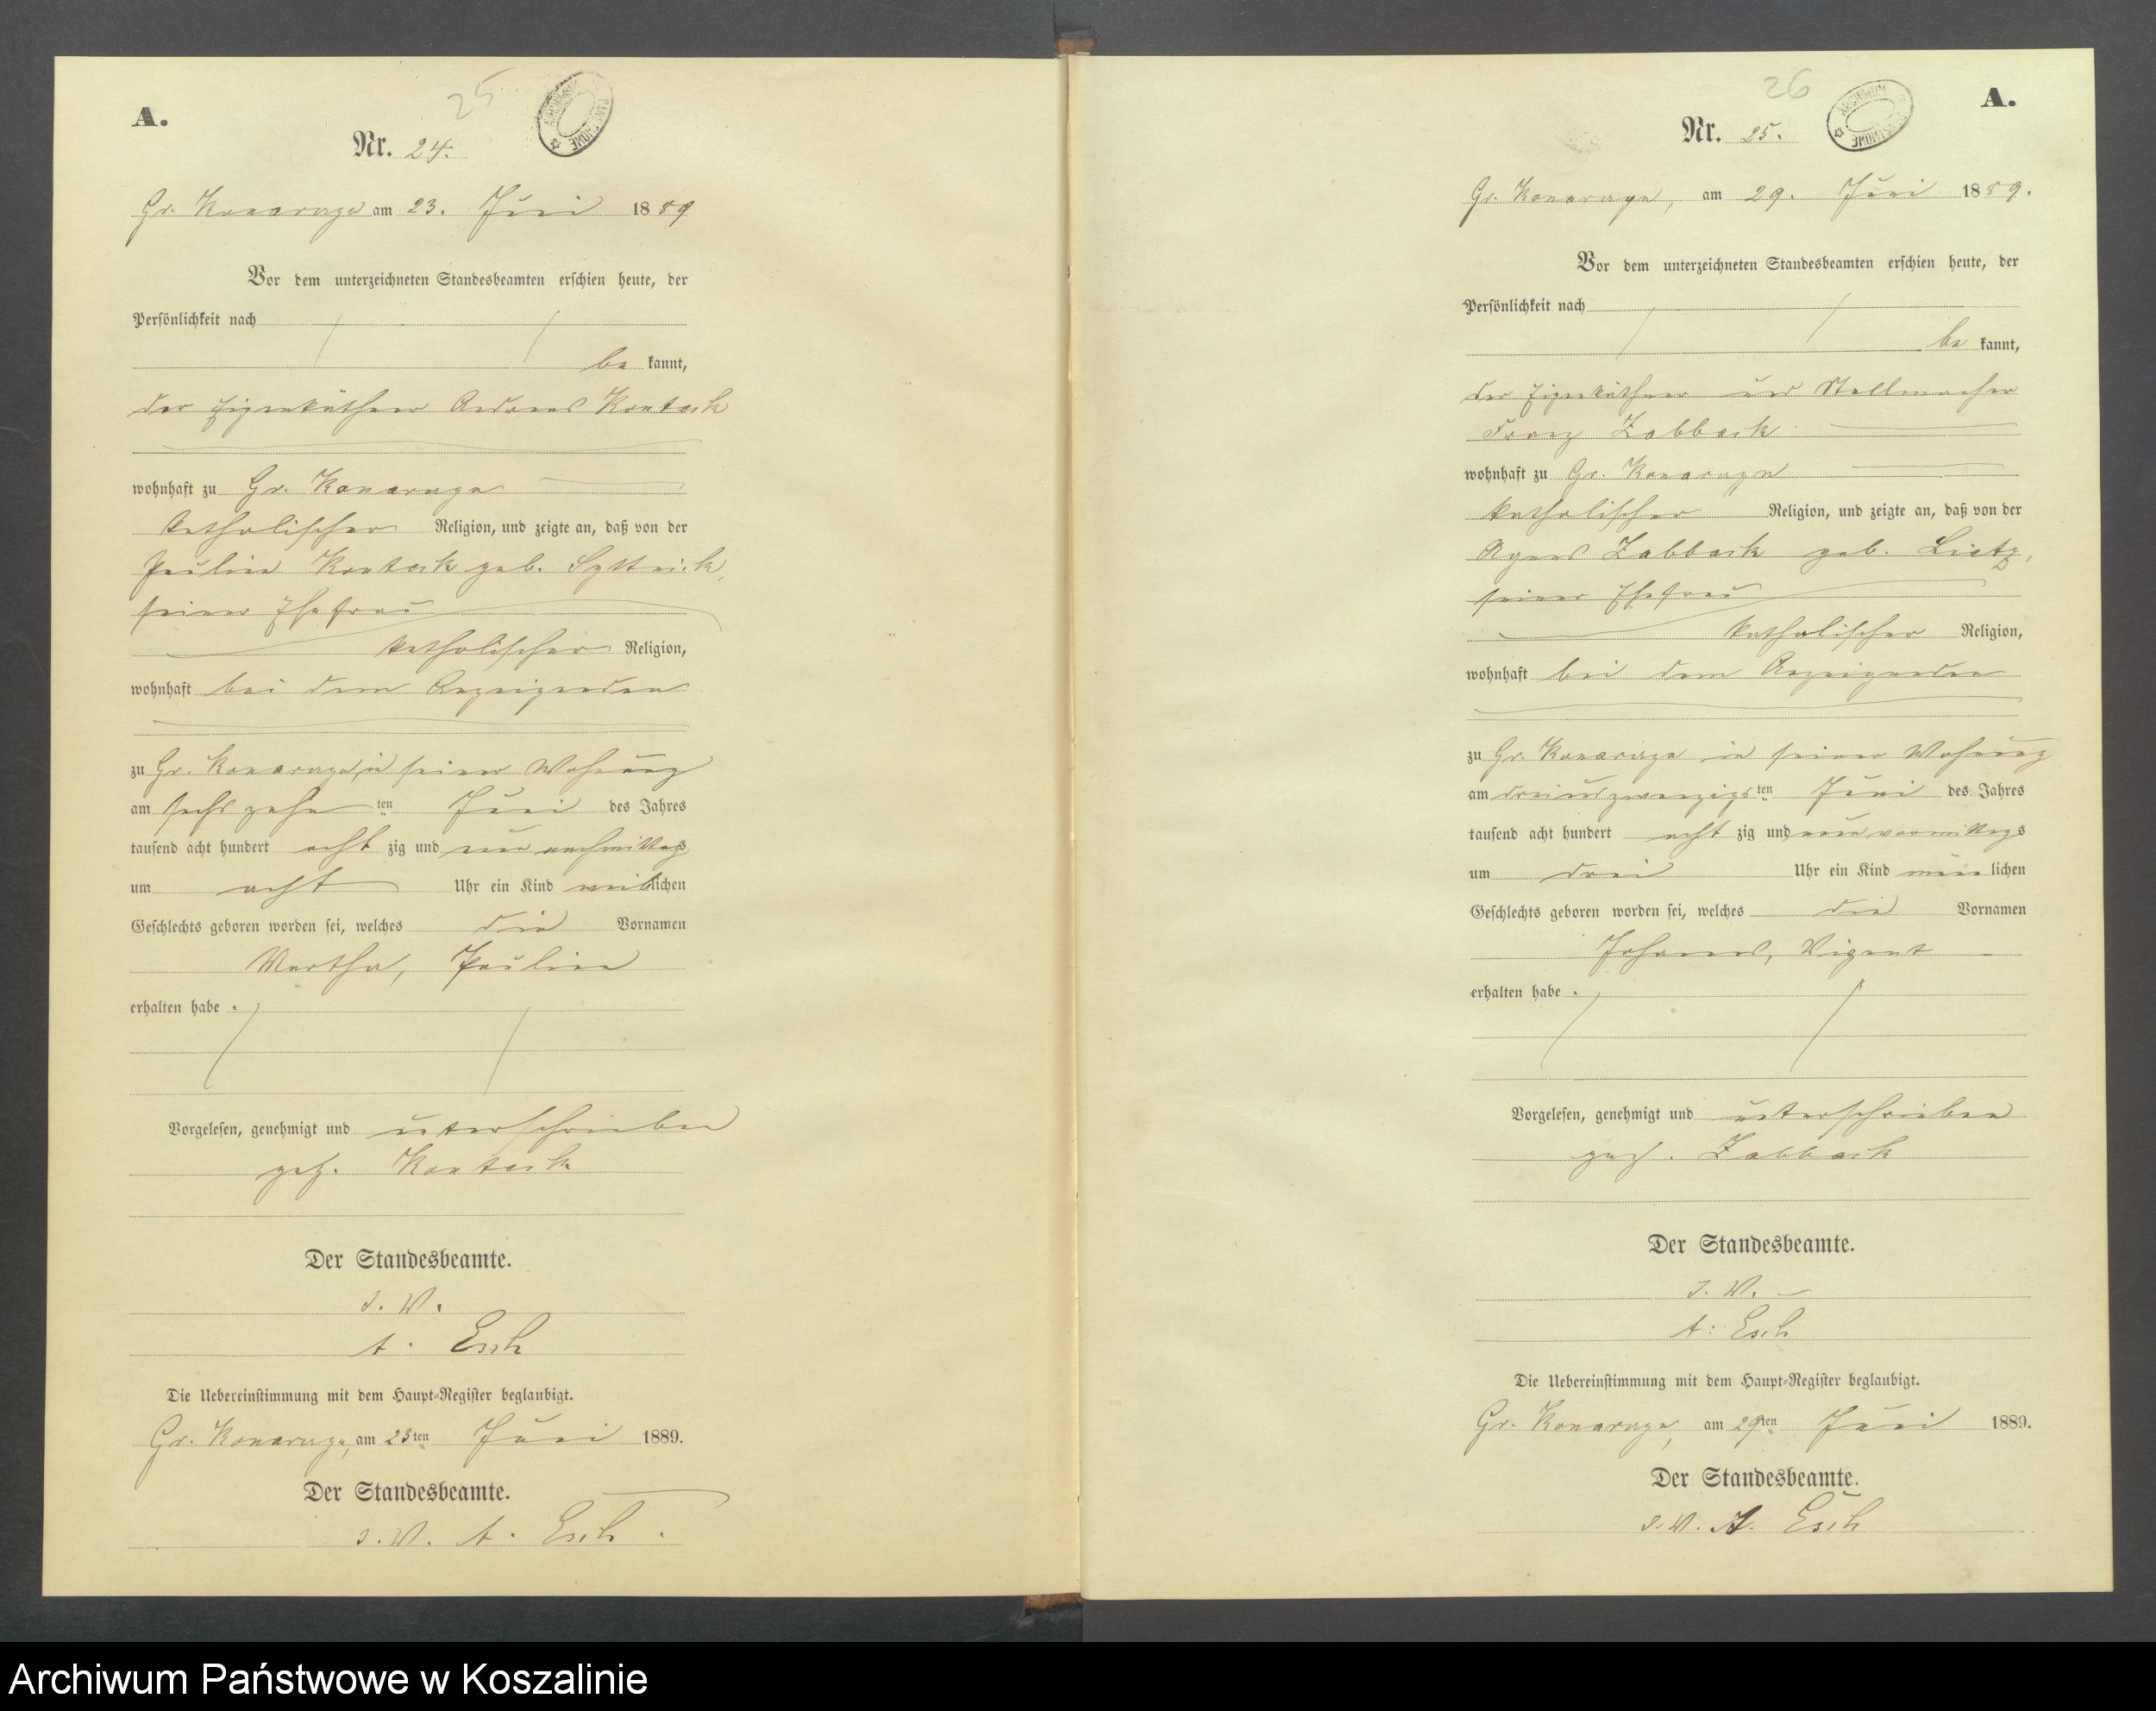 25
A.
Nr. 24.
Gr. Konarzyn am 23. Juni 1889
Vor dem unterzeichneten Standesbeamten erschien heute, der
Persönlichkeit nach
be kannt,
der Eigenkäthner Andreas Kontack
wohnhaft zu Gr. Konarzyn
katholischer Religion, und zeigte an, daß von der
Pauline Kontack geb.
seiner Ehefrau
katholischer Religion,
wohnhaft bei dem Anzeigenden
zu Gr. Konarzyn in seiner Wohnung
am sechszehn ten Juni des Jahres
tausend acht hundert acht zig und neun nachmittags
um acht Uhr ein Kind weiblichen
Geschlechts geboren worden sei, welches die Vornamen
Martha, Pauline
erhalten habe.
Vorgelesen, genehmigt und unterschrieben
gez. Kontack
Der Standesbeamte.
I. V.
A. Esch
Die Uebereinstimmung mit dem Haupt-Register beglaubigt.
Gr. Konarzyn, am 23ten Juni 1889.
Der Standesbeamte.
I. V. A. Esch.
26
A.
Nr. 25.
Gr. Konarzyn, am 29. Juni 1889.
Vor dem unterzeichneten Standesbeamten erschien heute, der
Persönlichkeit nach
be kannt,
der Eigenkäthner und Stellmacher
Franz Zabback
wohnhaft zu Gr. Konarzyn
katholischer Religion, und zeigte an, daß von der
Agnes Zabback geb. Lietz,
seiner Ehefrau
katholischer Religion,
wohnhaft bei dem Anzeigenden
zu Gr. Konarzyn in seiner Wohnung
am dreiundzwanzigsten Juni des Jahres
tausend acht hundert acht zig und neun vormittags
um drei Uhr ein Kind männlichen
Geschlechts geboren worden sei, welches die Vornamen
Johannes, Vigant
erhalten habe.
Vorgelesen, genehmigt und unterschrieben
gez. Zabback
Der Standesbeamte.
I. V.
A. Esch
Die Uebereinstimmung mit dem Haupt-Register beglaubigt.
Gr. Konarzyn, am 29ten Juni 1889.
Der Standesbeamte.
I. V. A. Esch
Archiwum Państwowe w Koszalinie